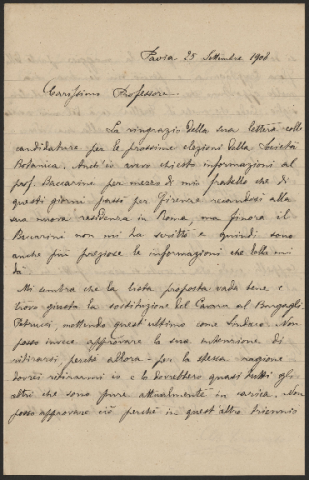 Pavia 25 Settembre 1908
Carissimo Professore
La ringrazio della sua lettera colle
candidature per le prossime elezioni della Società
Botanica. Anch'io avevo chiesto informazioni al
prof. Baccarini per mezzo di mio fratello che di
questi giorni passò per Firenze recandosi alla
sua nuova residenza in Roma, ma finora il
Baccarini non mi ha scritto e quindi sono
anche più preziose le informazioni che Ella mi
dà.
Mi sembra che la lista proposta vada bene e
trovo giusta la sostituzione del Cavara al Bargagli
Petrucci, mettendo quest'ultimo come Sindaco. Non
posso invece approvare la sua intenzione di
ritirarsi perché allora - per la stessa ragione
dovrei ritirarmi io e lo dovrebbero quasi tutti gli
altri che sono pure attualmente in carica. Non
posso approvare ciò perché in quest'altro triennio